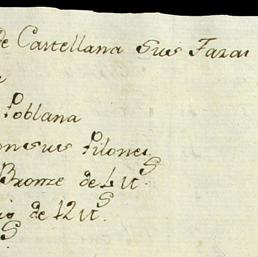 de Castellana sus Tazas
Poblana
con sus Pilones
Bronze de 4 lt.s
de 12 lt.s